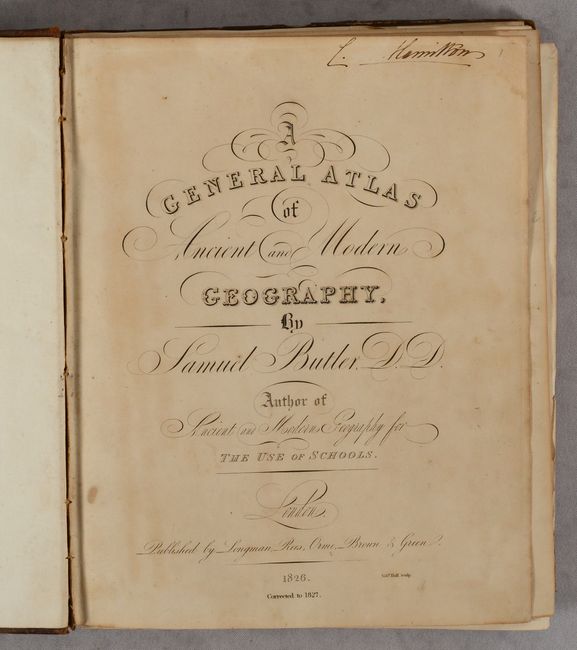 C. Hamilton
A
GENERAL ATLAS
of
Ancient and Modern
GEOGRAPHY.
By
Samuel Butler, D.D.
Author of
Ancient and Modern Geography for
THE USE OF SCHOOLS.
London.
Published by Longman, Rees, Orme, Brown & Green.
1826.
Sidy. Hall sculp.
Corrected to 1827.